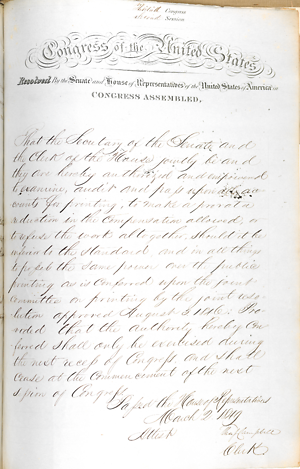 Thirtieth Congress
Second Session
Congress of the United States
Resolved By the Senate and House of Representatives of the United States of America in
CONGRESS ASSEMBLED,
That the Secretary of the Senate and
the Clerk of the House jointly be and
they are hereby authorized and empowered
to examine, audit and pass upon all ac
counts for printing, to make a pro rata
reduction in the compensation allowed, or
to refuse the work altogether, should it be
inferior to the standard, and in all things
to possess the same power over the public
printing as is conferred upon the joint
Committee on printing by the joint reso
lution approved August 3 1846. Pro
vided that the authority hereby con
ferred shall only be exercised during
the next recess of Congress, and shall
cease at the commencement of the next
session of Congress.
Passed the House of Representatives
March 2 1849
Attest
Tho J Campbell
Clerk